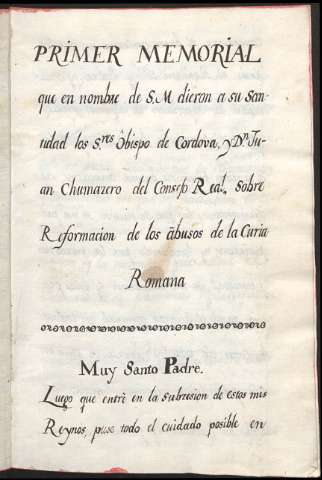 PRIMER MEMORIAL
que en nombre de S. M dieron a su San-
tidad los S.res Obispo de Cordova, y Dn. Ju-
an Chumazero del Consejo Real, sobre
Reformacion de los abusos de la Curia
Romana
Muy Santo Padre.
Luego que entrè en la subzesion de estos mis
Reynos, puse todo el cuidado posible en